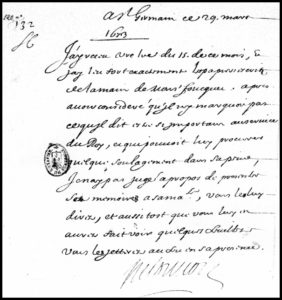 a St Germain ce 29. mars
1683
132
J'ay receu vre lre du 15. de ce mois, et
J'ay leu fort exactement les papiers escrits
de la main de Monsr foucquet. apres
avoir consideré qu'il n'y marquoit pas
ce qu'il dit estre si important au service
du Roy, et qui pouvoit luy procurer
quelque soulagement dans sa peine,
Je n'ay pas jugé a propos de presenter
ses memoires a sa ma.té, vous le luy
direz, et aussitost que vous luy en
aurez fait voir quelques feuilles
vous les jetterez au feu en sa presence.